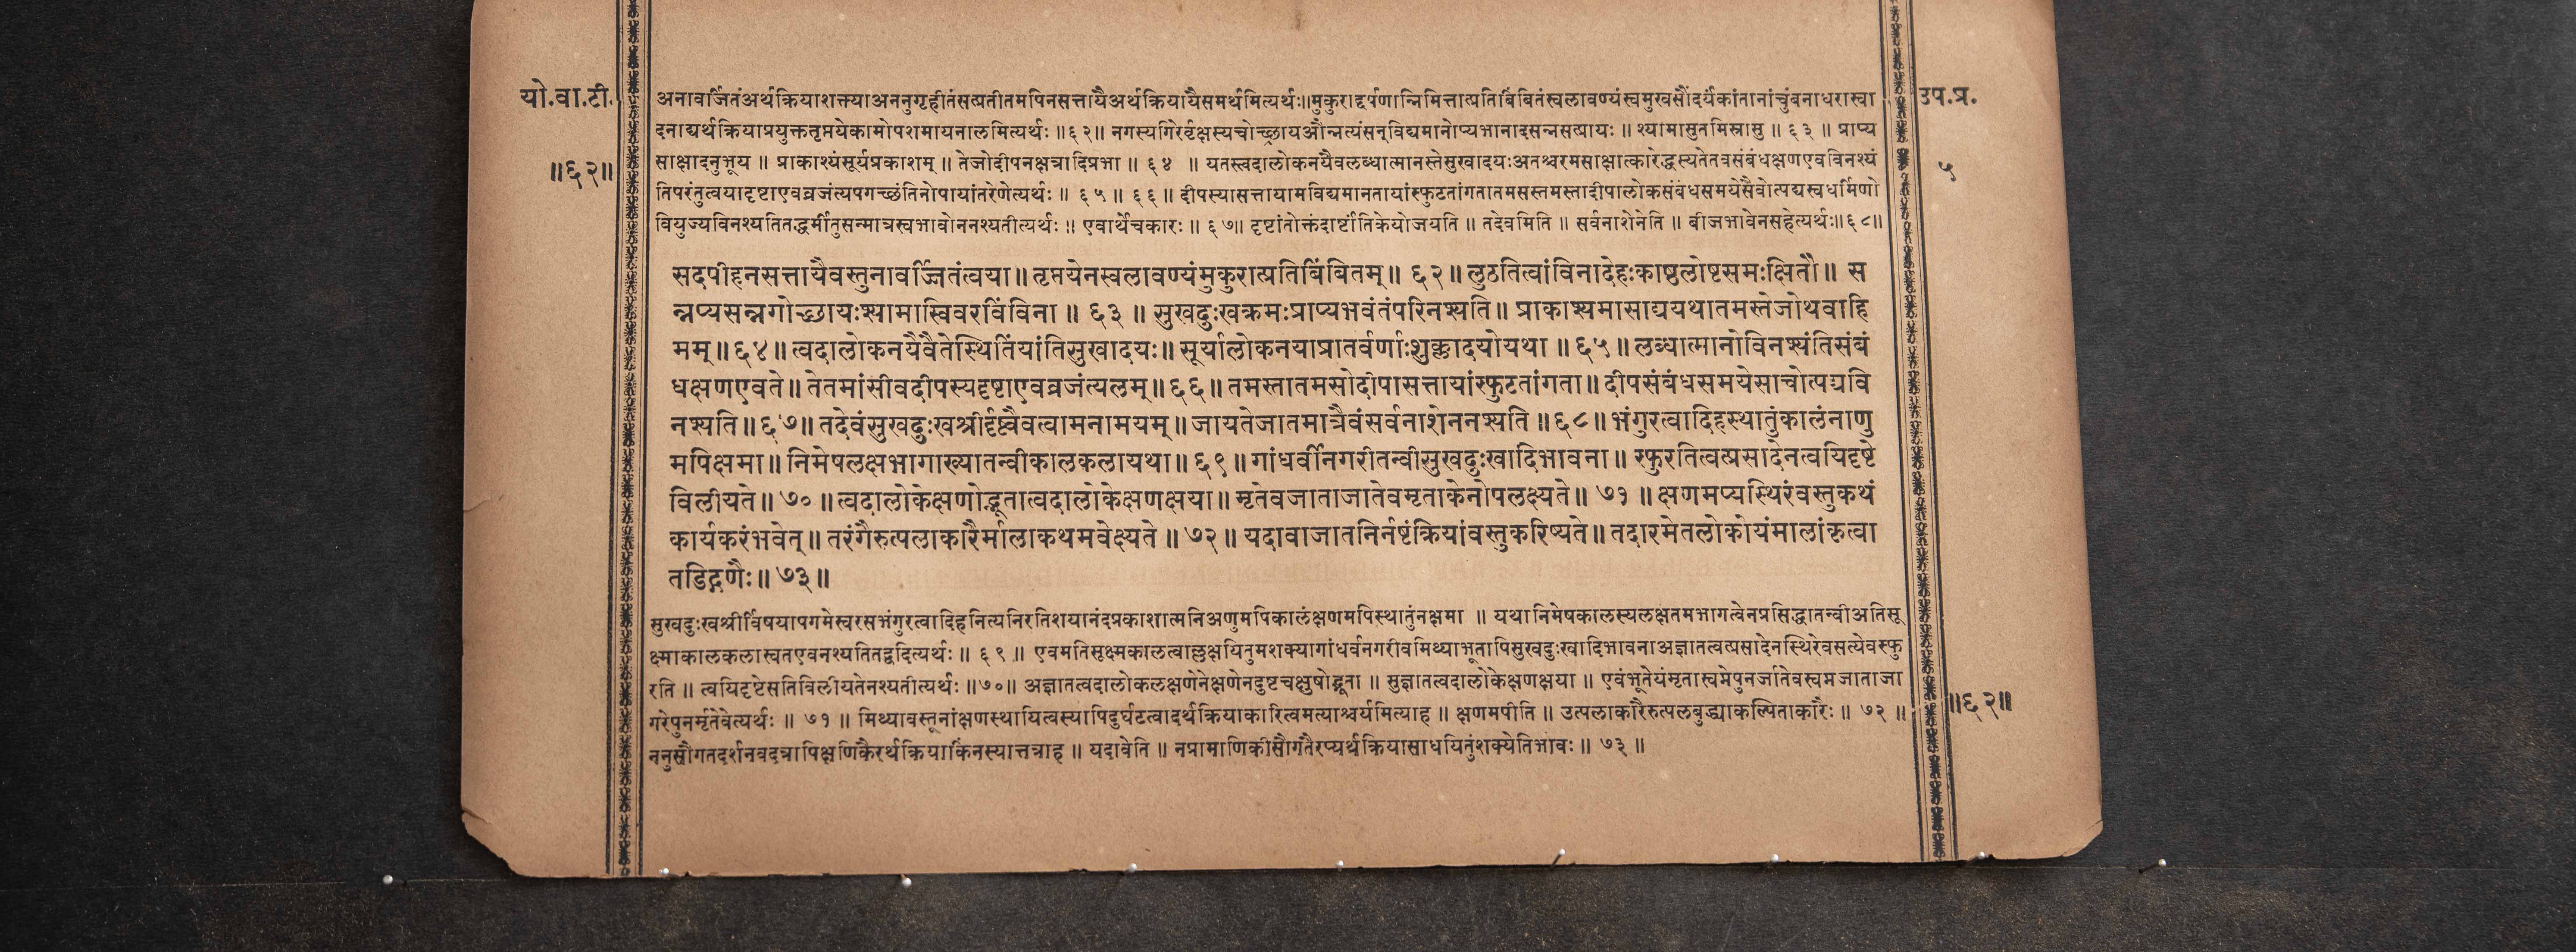 यो.वा.टी.
॥६२॥
उप.प्र.
५
अनावर्जितंअर्थक्रियाशक्त्याअननुगृहीतंसत्प्रतीतमपिनसत्तायैअर्थक्रियायैसमर्थमित्यर्थः॥मुकुरादर्पणान्निमित्तात्प्रतिबिंबितंस्वलावण्यंस्वमुखसौंदर्यंकांतानांचुंबनाधरास्वा
दनाद्यर्थक्रियाप्रयुक्ततृप्तयेकामोपशमायनालमित्यर्थः ॥६२॥ नगस्यगिरेर्वृक्षस्यचोच्छ्रायऔन्नत्यंसन्विद्यमानोप्यभानादसन्नसत्प्रायः ॥ श्यामासुतमिस्रासु ॥ ६३ ॥ प्राप्य
साक्षादनुभूय ॥ प्राकाश्यंसूर्यप्रकाशम् ॥ तेजोदीपनक्षत्रादिप्रभा ॥ ६४ ॥ यतस्त्वदालोकनयैवलब्धात्मानस्तेसुखादयःअतश्चरमसाक्षात्कारेद्धस्यतेतवसंबंधक्षणएवविनश्यं
तिपरंतुत्वयादृष्टाएवव्रजंत्यपगच्छंतिनोपायांतरेणेत्यर्थः ॥ ६५ ॥ ६६ ॥ दीपस्यासत्तायामविद्यमानतायांस्फुटतांगतातमसस्तमस्तादीपालोकसंबंधसमयेसैवोत्पद्यस्वधर्मिणो
वियुज्यविनश्यतितद्धर्मीतुसन्मात्रस्वभावोननश्यतीत्यर्थः ॥ एवार्थेचकारः ॥ ६७॥ दृष्टांतोक्तंदार्ष्टांतिकेयोजयति ॥ तदेवमिति ॥ सर्वनाशेनेति ॥ बीजभावेनसहेत्यर्थः॥६८॥
सदपीहनसत्तायैवस्तुनावर्ज्जितंत्वया॥ तृप्तयेनस्वलावण्यंमुकुरात्प्रतिबिंबितम्॥ ६२॥ लुठतित्वांविनादेहःकाष्ठलोष्टसमःक्षितौ॥ स
न्नप्यसन्नगोच्छ्रायःश्यामास्विवरविंविना॥ ६३॥ सुखदुःखक्रमःप्राप्यभवंतंपरिनश्यति॥ प्राकाश्यमासाद्ययथातमस्तेजोथवाहि
मम्॥६४॥ त्वदालोकनयैवैतेस्थितिंयांतिसुखादयः॥ सूर्यालोकनयाप्रातर्वर्णाःशुक्लादयोयथा॥६५॥ लब्धात्मानोविनश्यंतिसंबं
धक्षणएवते॥ तेतमांसीवदीपस्यदृष्टाएवव्रजंत्यलम्॥६६॥ तमस्तातमसोदीपासत्तायांस्फुटतांगता॥ दीपसंबंधसमयेसाचोत्पद्यवि
नश्यति॥६७॥ तदेवंसुखदुःखश्रीर्दृष्ट्वैवत्वामनामयम्॥ जायतेजातमात्रैवंसर्वनाशेननश्यति॥६८॥ भंगुरत्वादिहस्थातुंकालंनाणु
मपिक्षमा॥ निमेषलक्षभागाख्यातन्वीकालकलायथा॥६९॥ गांधर्वीनगरीतन्वीसुखदुःखादिभावना॥ स्फुरतित्वत्प्रसादेनत्वयिदृष्टे
विलीयते॥ ७०॥ त्वदालोकेक्षणोद्भूतात्वदालोकेक्षणक्षया॥ मृतेवजाताजातेवमृताकेनोपलक्ष्यते॥ ७१॥ क्षणमप्यस्थिरंवस्तुकथं
कार्यकरंभवेत्॥ तरंगैरुत्पलाकारैर्मालाकथमवेक्ष्यते॥ ७२॥ यदावाजातनिर्नष्टंक्रियांवस्तुकरिष्यते॥ तदारमेतलोकोयंमालांकृत्वा
तडिद्गणैः॥ ७३॥
सुखदुःखश्रीर्विषयापगमेस्वरसभंगुरत्वादिहनित्यनिरतिशयानंदप्रकाशात्मनिअणुमपिकालंक्षणमपिस्थातुंनक्षमा ॥ यथानिमेषकालस्यलक्षतमभागत्वेनप्रसिद्धातन्वीअतिसू
क्ष्माकालकलास्वतएवनश्यतितद्वदित्यर्थः॥ ६९॥ एवमतिसूक्ष्मकालत्वाल्लक्षयितुमशक्यागांधर्वनगरीवमिथ्याभूतापिसुखदुःखादिभावनाअज्ञातत्वत्प्रसादेनस्थिरेवसत्येवस्फु
रति ॥ त्वयिदृष्टेसतिविलीयतेनश्यतीत्यर्थः॥७०॥ अज्ञातत्वदालोकलक्षणेनेक्षणेनदुष्टचक्षुषोद्भूता ॥ सुज्ञातत्वदालोकेक्षणक्षया ॥ एवंभूतेयंमृतास्वप्नेपुनर्जातेवस्वप्नजाताजा
गरेपुनर्मृतेवेत्यर्थः ॥ ७१ ॥ मिथ्यावस्तूनांक्षणस्थायित्वस्यापिदुर्घटत्वादर्थक्रियाकारित्वमत्याश्चर्यमित्याह ॥ क्षणमपीति ॥ उत्पलाकारैरुत्पलबुद्ध्याकल्पिताकारैः ॥ ७२ ॥
ननुसौगतदर्शनवदत्रापिक्षणिकैरर्थक्रियाकिंनस्यात्तत्राह ॥ यदावेति ॥ नप्रामाणिकीसौगतैरप्यर्थक्रियासाधयितुंशक्येतिभावः ॥ ७३ ॥
॥६२॥